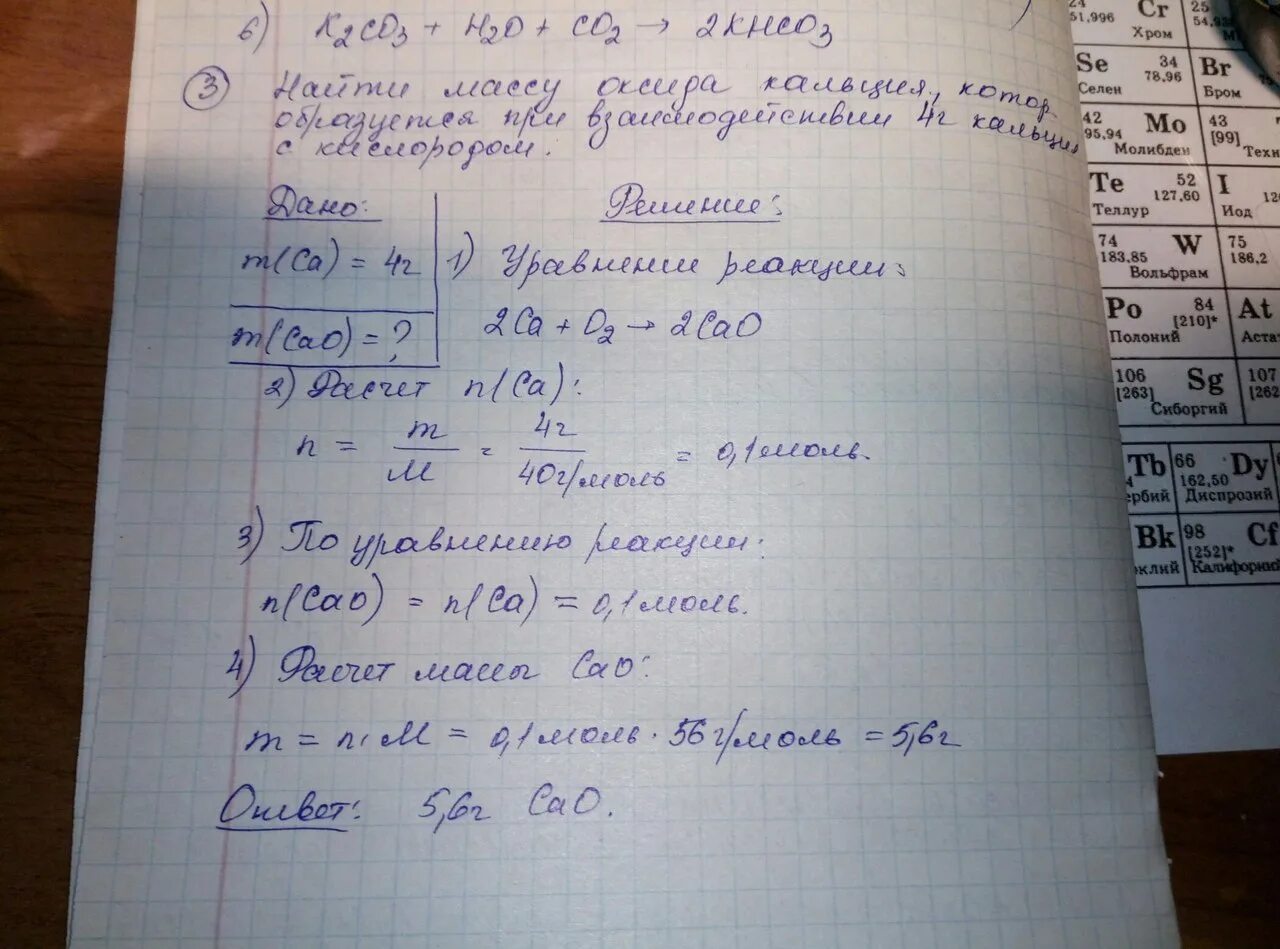 6) K₂CO₃ + H₂O + CO₂ → 2KHCO₃
③ Найти массу оксида кальция, котор.
образуется при взаимодействии 4г кальция
с кислородом.
Дано:
m(Ca) = 4г
m(CaO) = ?
Решение:
1) Уравнение реакции:
2Ca + O₂ → 2CaO
2) Расчет n(Ca):
n = m/M = 4г/40г/моль = 0,1 моль.
3) По уравнению реакции:
n(CaO) = n(Ca) = 0,1 моль.
4) Расчет массы CaO:
m = n·M = 0,1 моль · 56 г/моль = 5,6г
Ответ: 5,6г CaO.
24 Cr 25
51,996 54,93
Хром
Se 34 Br
78,96
Селен Бром
42 Mo 43
95,94 [99]
Молибден Техн
Te 52 I
127,60
Теллур Иод
74 W 75
183,85 186,2
Вольфрам
Po 84 At
[210]*
Полоний Аста
106 Sg 107
[263] [262
Сиборгий
Tb 66 Dy
162,50
ербий Диспрозий
Bk 98 Cf
[252]*
клий Калифорний